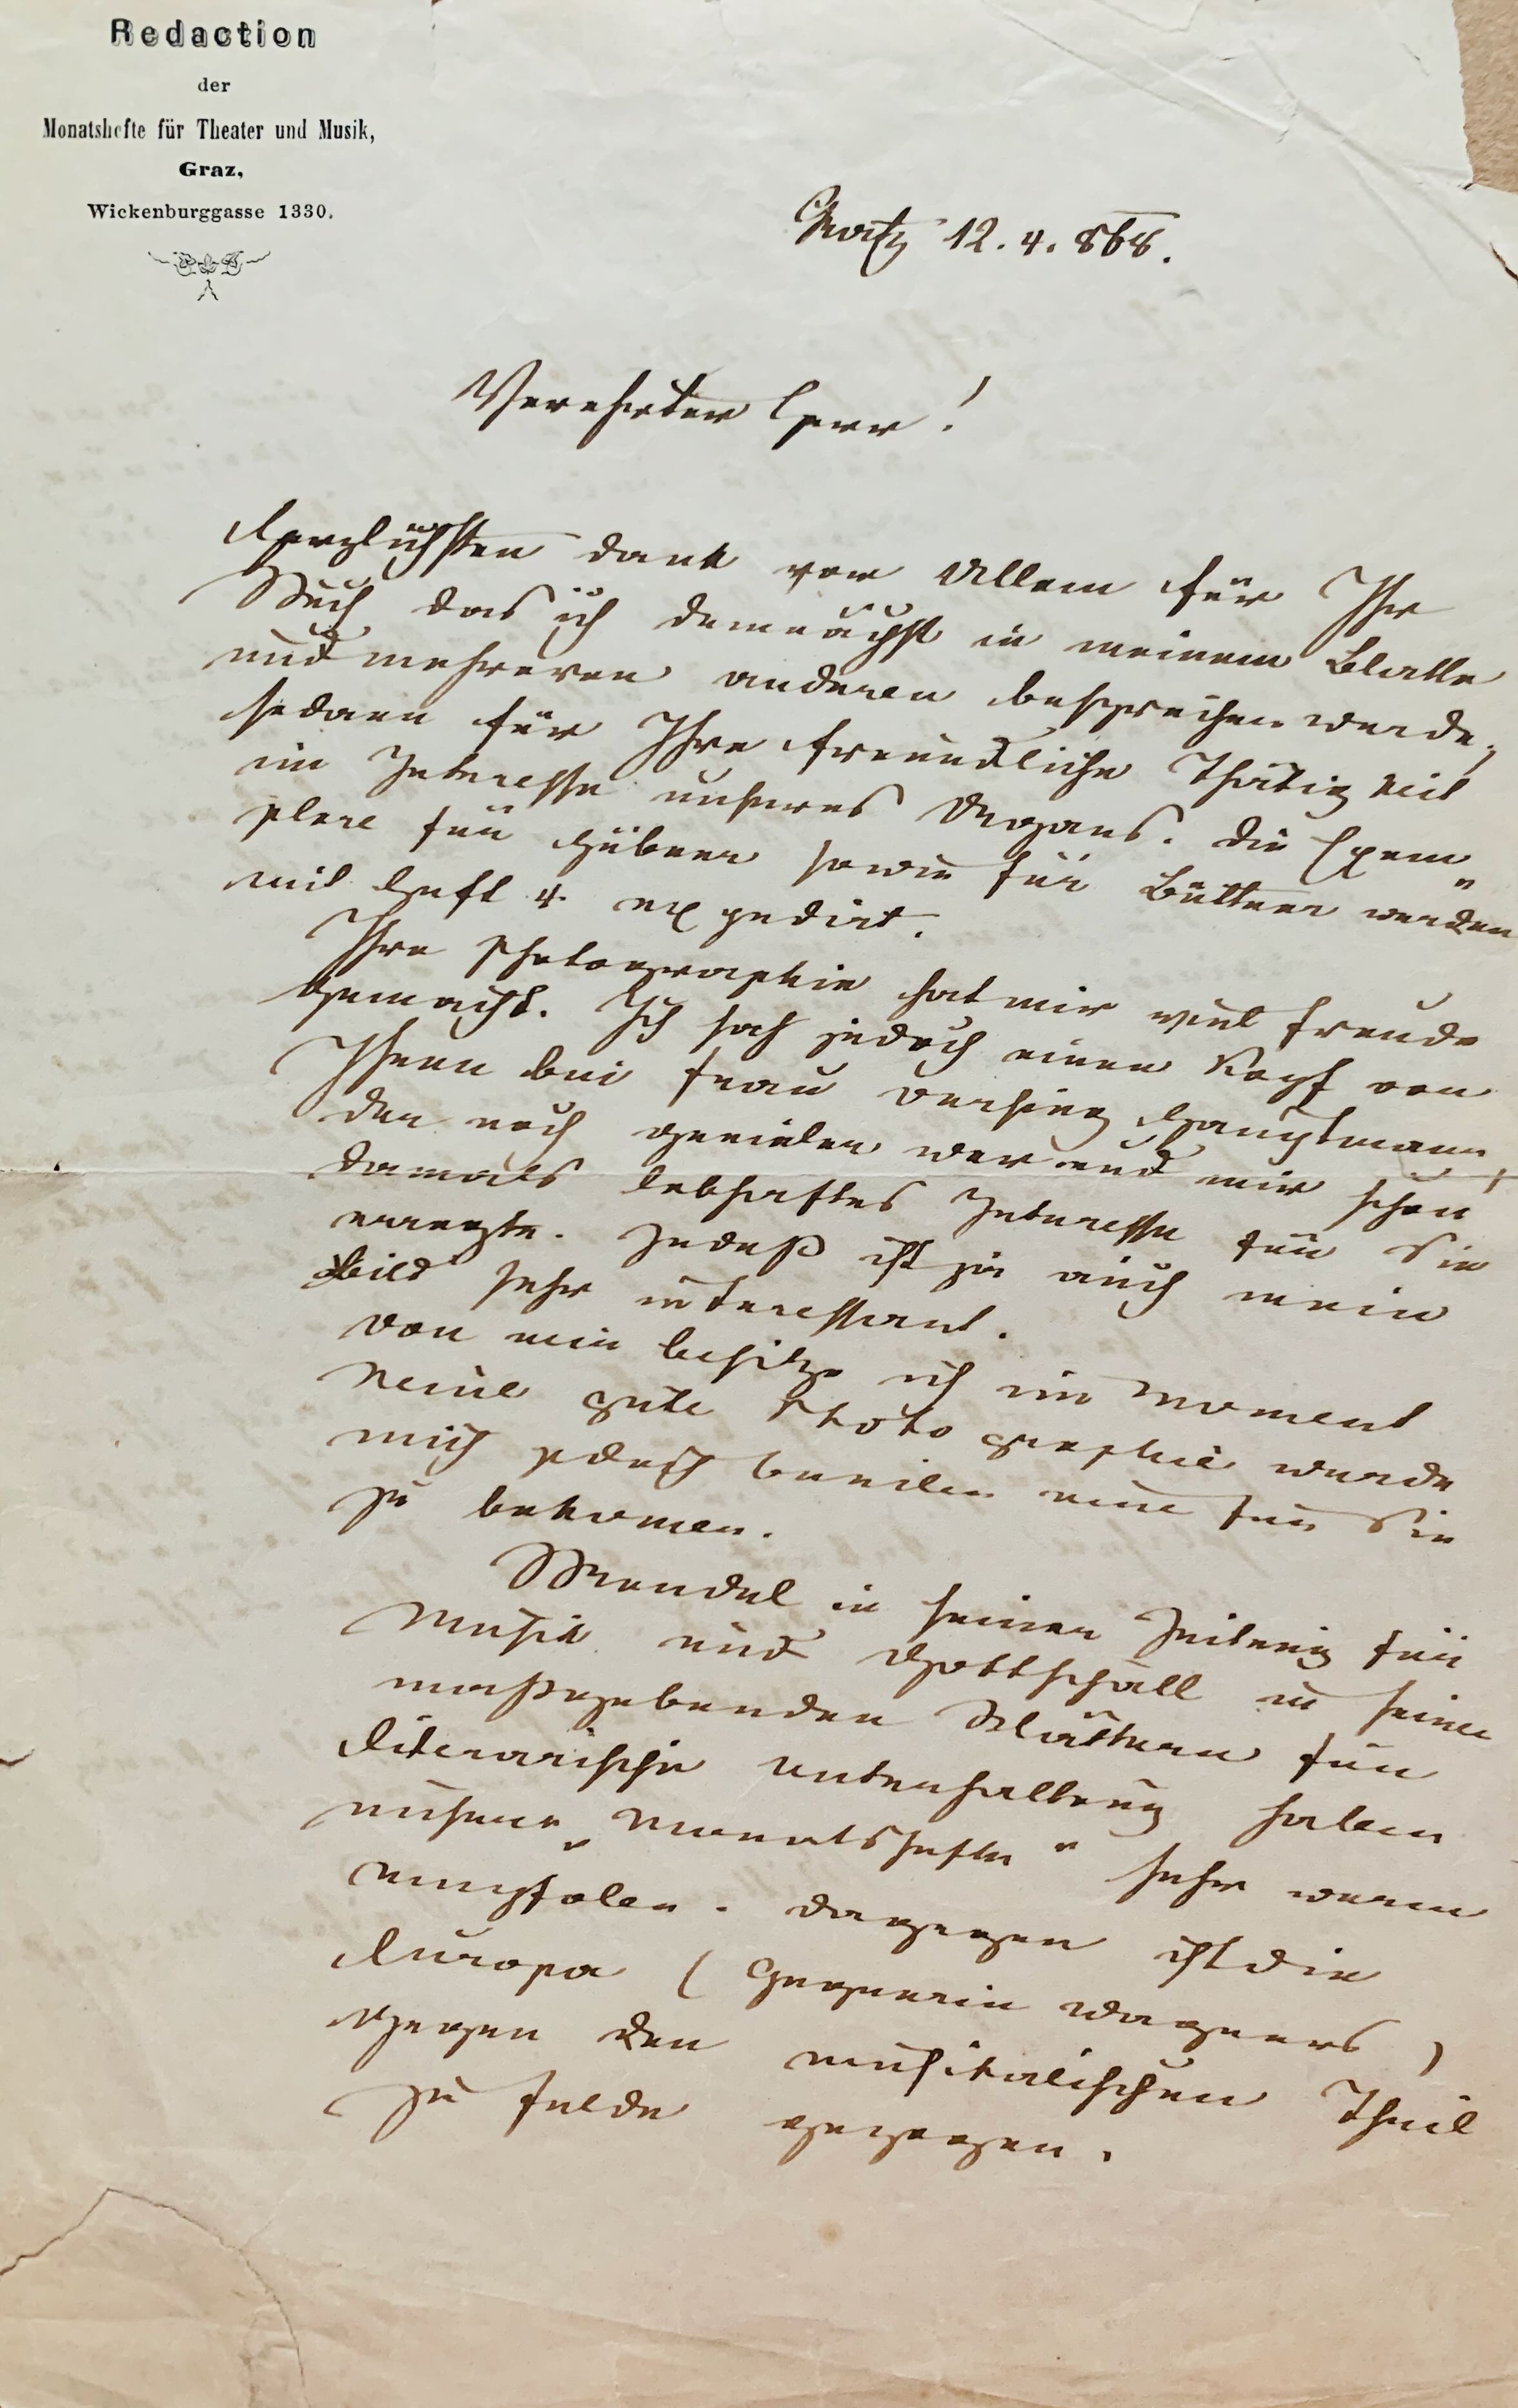 Redaction
der
Monatshefte für Theater und Musik,
Graz,
Wickenburggasse 1330.
Gratz 12. 4. 868.
Verehrter Herr!
Herzlichsten Dank vor Allem für Ihr
Buch das ich demnächst in meinem Blatte
und mehreren anderen besprechen werde,
sodann für Ihre freundliche Thätigkeit
im Interesse unseres Organs. Die Exem„
plare für Hübner sowie für Büttner werden
mit Heft 4. expedirt.
Ihre Photographie hat mir viel Freude
gemacht. Ich sah jedoch einen Kopf von
Ihnen bei Frau Versing Hauptmann,
der noch genialer war und mir schon
damals lebhaftes Interesse für Sie
erregte. Indeß ist ja auch mein
Bild sehr interessant.
Von mir besitze ich im Moment
keine gute Photographie werde
mich jedoch beeilen eine für Sie
zu bekomen.
Mendel in seiner Zeitung für
Musik und Gottschall in seinen
maßgebenden Blättern für
literarische Unterhaltung haben
unsere „Monatshefte" sehr warm
empfolen. Dagegen ist die
Europa (Gegnerin Wagners)
gegen den musikalischen Theil
zu Felde gezogen.